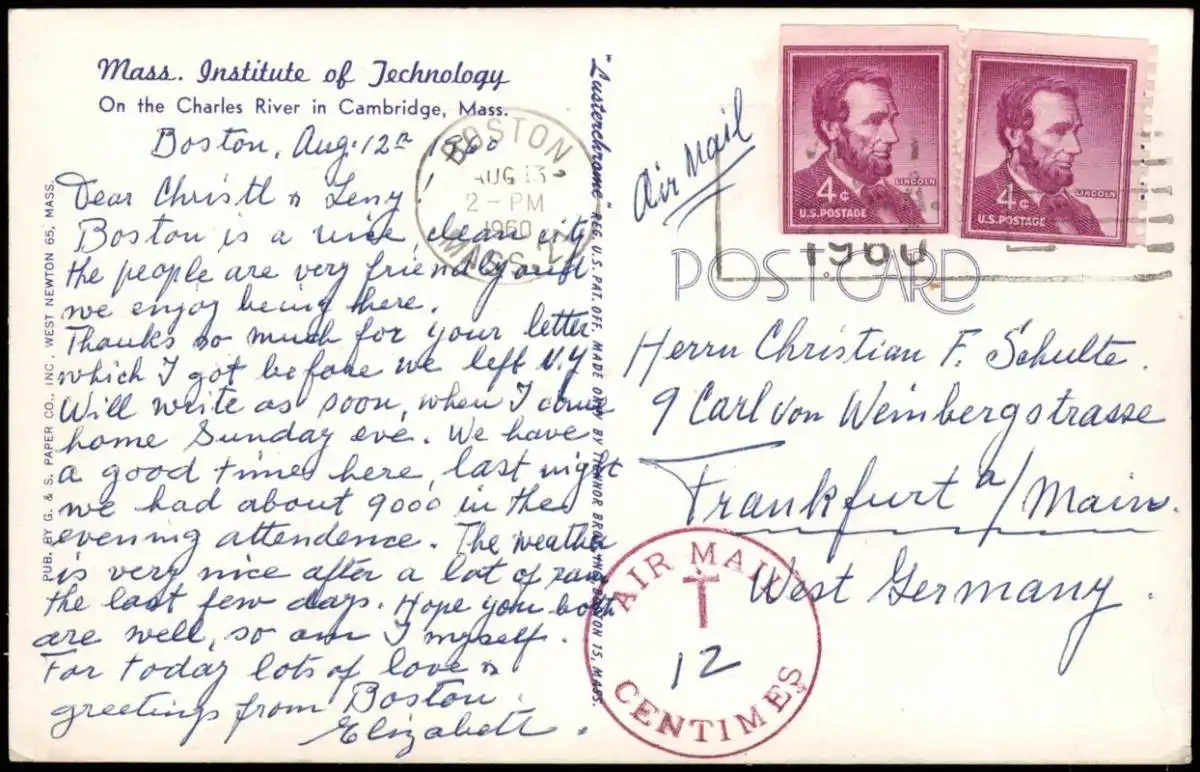 Mass. Institute of Technology
On the Charles River in Cambridge, Mass.
Boston, Aug. 12th 1960
Dear Christl & Leny!
Boston is a nice, clean city
the people are very friendly and
we enjoy being here.
Thanks so much for your letter
which I got before we left N.Y
Will write as soon, when I come
home Sunday eve. We have
a good time here, last night
we had about 9000 in the
evening attendence. The weather
is very nice after a lot of rain
the last few days. Hope you both
are well, so am I myself.
For today lots of love &
greetings from Boston.
Elizabett.
PUB. BY G. & S. PAPER CO., INC., WEST NEWTON 65, MASS.
"Lusterchrome" REG. U.S. PAT. OFF. MADE ONLY BY BOSTON 15, MASS.
BOSTON
AUG 13
2 - PM
1960
MASS.
Air Mail
4¢
LINCOLN
U.S. POSTAGE
4¢
LINCOLN
U.S. POSTAGE
1960
POST CARD
Herrn Christian F. Schulte.
9 Carl von Weinbergstrasse
Frankfurt a/Main.
West Germany.
AIR MAIL
T
12
CENTIMES